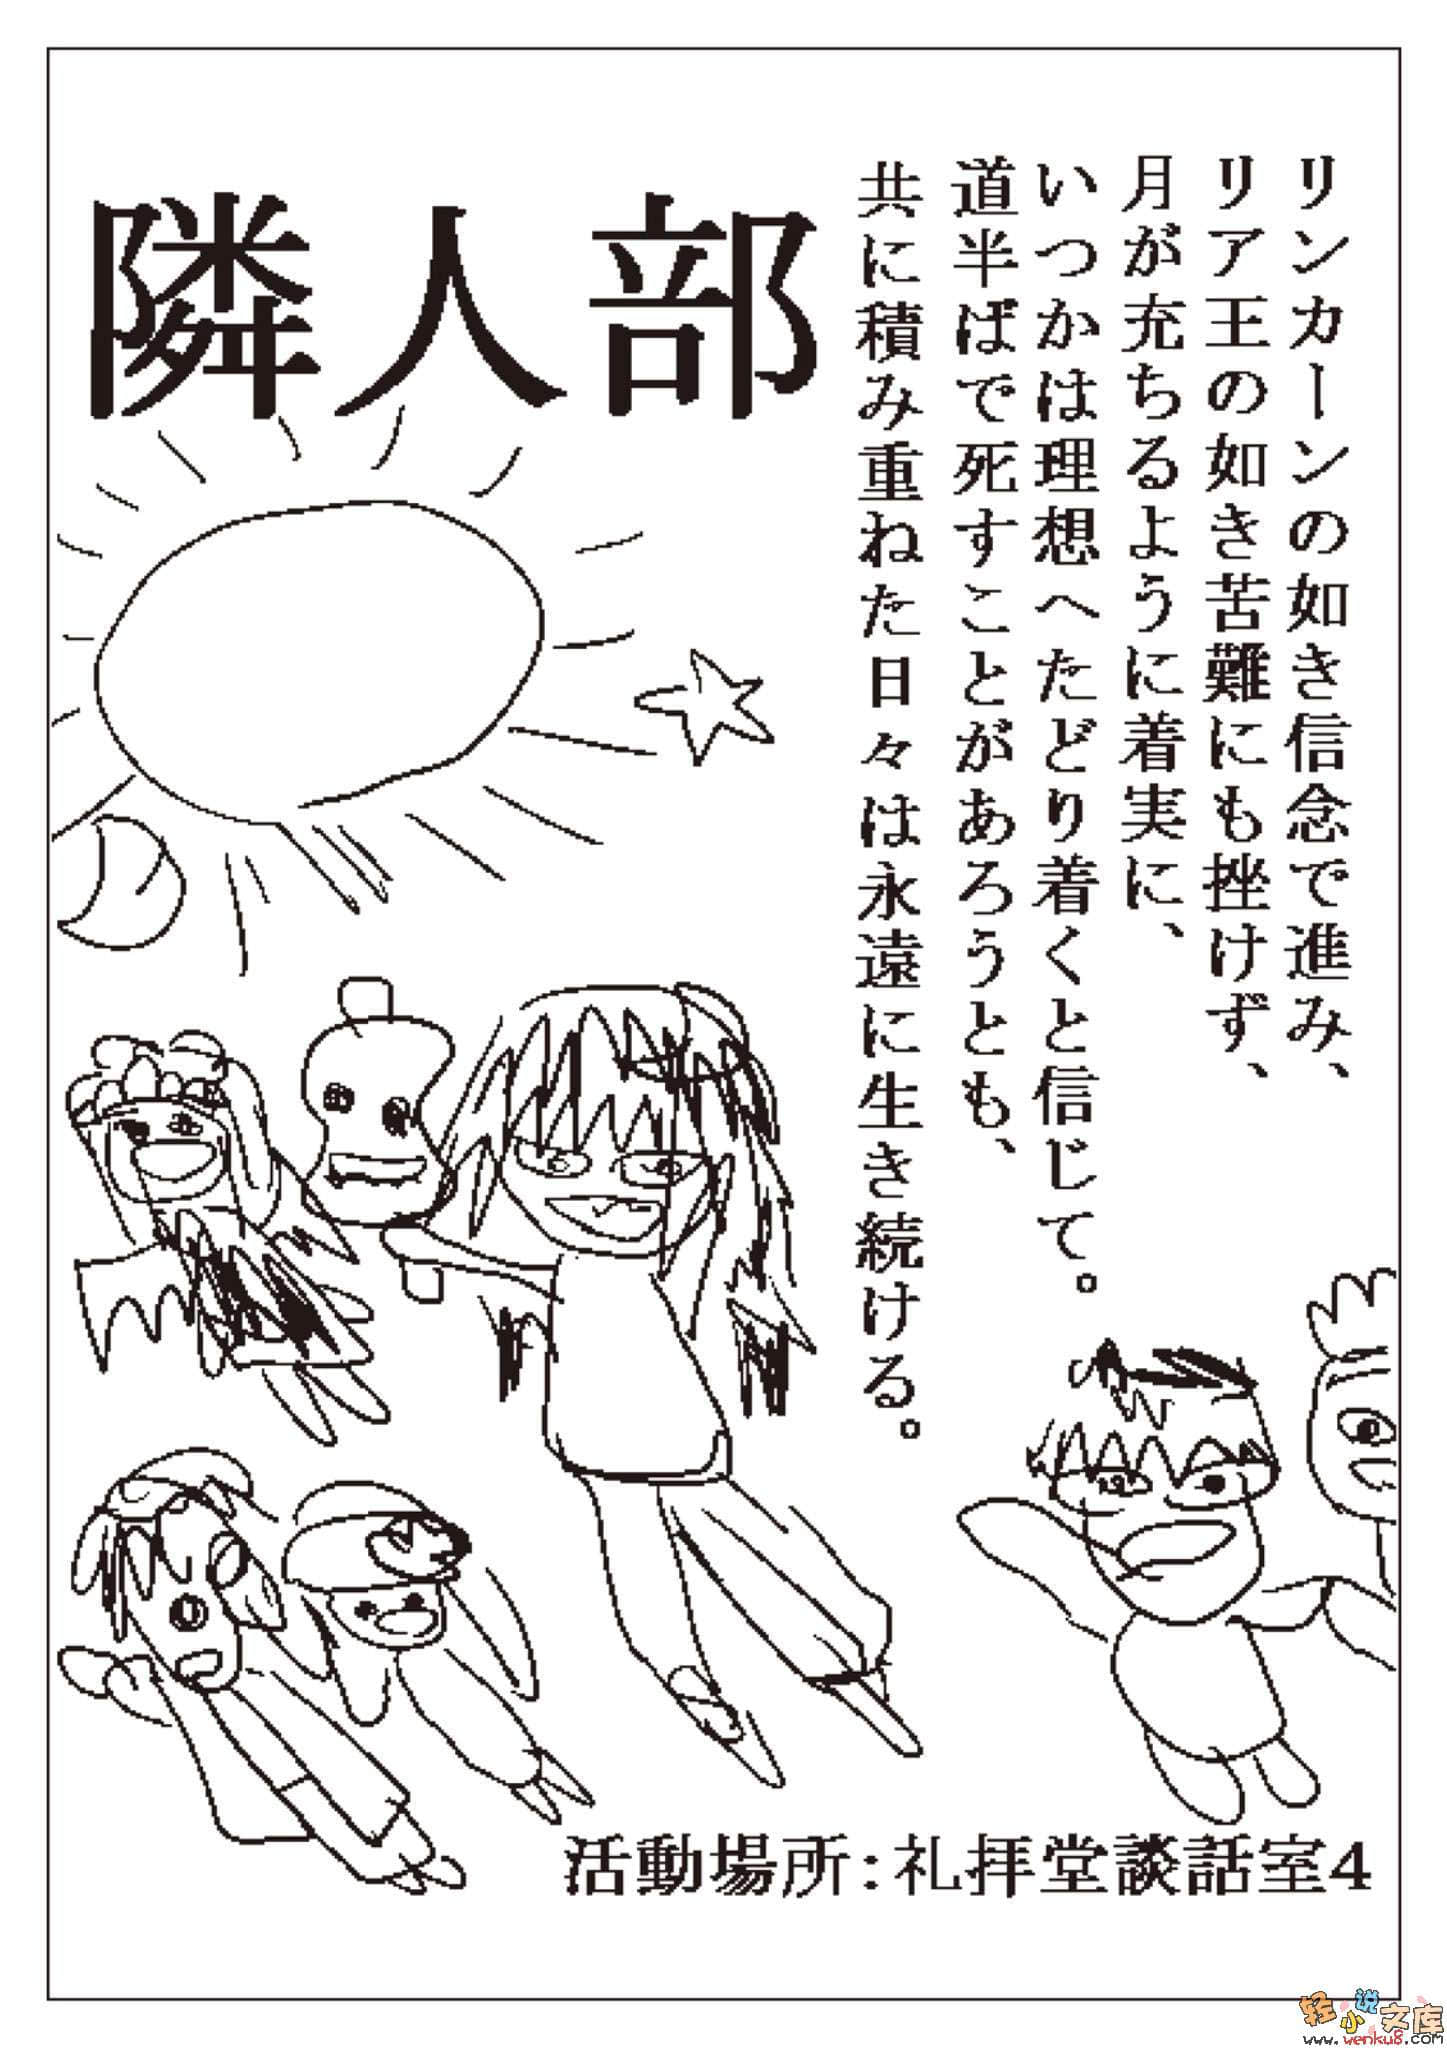 リンカーンの如き信念で進み、
リア王の如き苦難にも挫けず、
月が充ちるように着実に、
いつかは理想へたどり着くと信じて。
道半ばで死すことがあろうとも、
共に積み重ねた日々は永遠に生き続ける。
隣人部
活動場所:礼拝堂談話室4
轻小说文库
www.wenku8.com